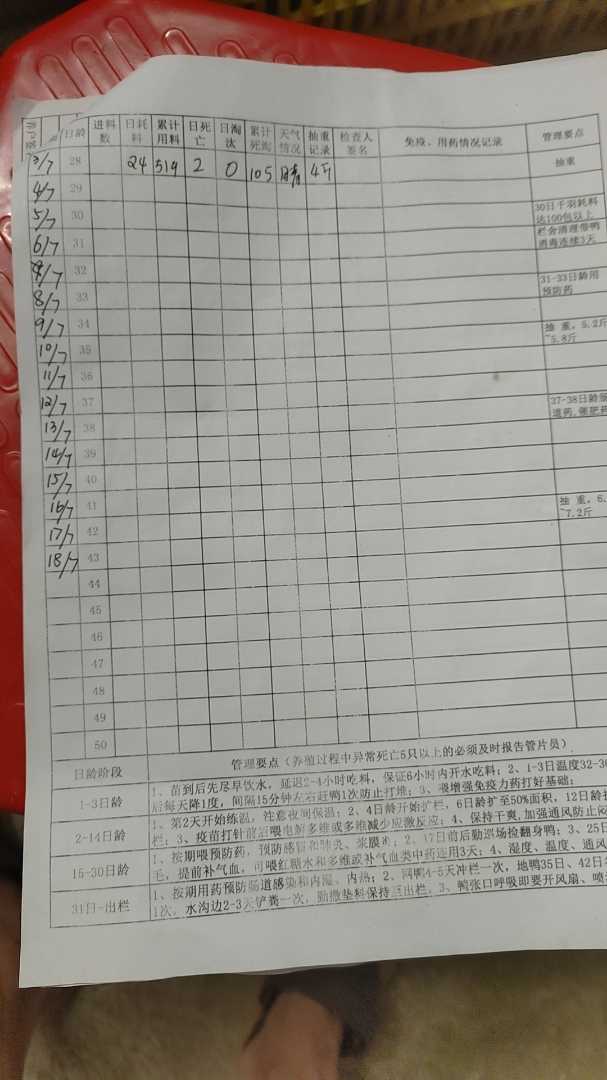 日龄 进料数 日耗料 累计用料 日死亡 日淘汰 累计死淘 天气情况 抽重记录 检查人签名 免疫、用药情况记录 管理要点
3/7 28 24 519 2 0 105 晴 4斤 抽重
4/7 29
5/7 30 30日千羽耗料达100包以上
6/7 31 栏舍清理带鸭消毒连续3天
/7 32
8/7 33 31-33日龄用预防药
9/7 34
10/7 35 抽重，5.2斤~5.8斤
11/7 36
12/7 37
13/7 38 37-38日龄肠道药,催肥药
14/7 39
15/7 40
16/7 41
17/7 42 抽重，6.~7.2斤
18/7 43
44
45
46
47
48
49
50
日龄阶段 管理要点（养殖过程中异常死亡5只以上的必须及时报告管片员）
1-3日龄 1、苗到后先尽早饮水，延迟2-4小时吃料，保证6小时内开水吃料；2、1-3日温度32-3
后每天降1度，间隔15分钟左右赶鸭1次防止打堆；3、喂增强免疫力药打好基础；
2-14日龄 1、第2天开始练温，注意夜间保温；2、4日龄开始扩栏，6日龄扩至50%面积，12日龄
栏；3、疫苗打针前后喂电解多维或多维减少应激反应；4、保持干爽,加强通风防止
15-30日龄 1、按期喂预防药，预防感冒和肺炎、浆膜炎；2、17日前后勤巡场捡翻身鸭；3、25日
毛，提前补气血，可喂红糖水和多维或补气血类中药连用3天；4、湿度、温度、通风
31日-出栏 1、按期用药预防肠道感染和内湿、内热；2、网鸭4-5天冲栏一次，地鸭35日、42日
1次，水沟边2-3天铲粪一次，勤撒垫料保持至出栏，3、鸭张口呼吸即要开风扇、喷